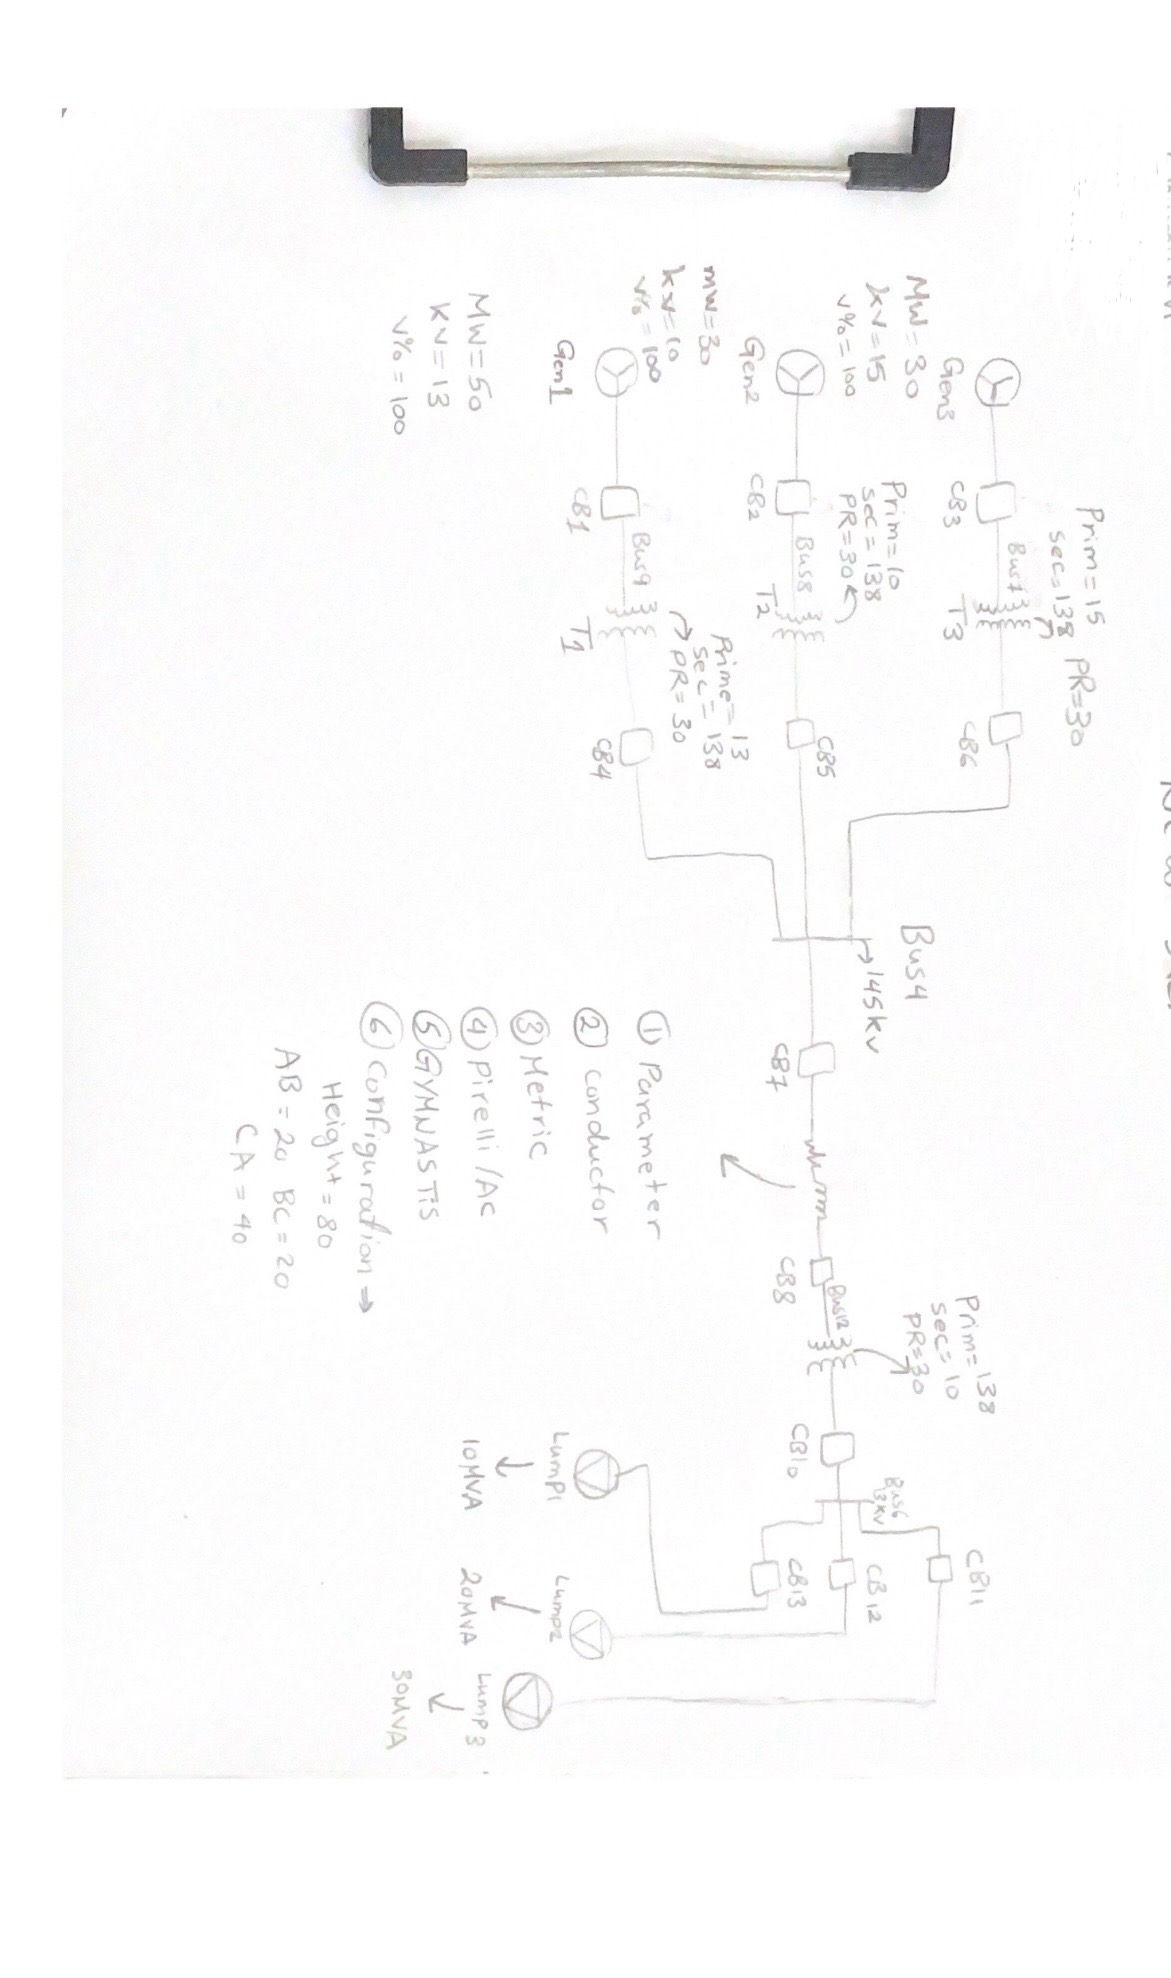 Prim=15
sec=138 PR=30
Gen3
CB3
Bus7
T3
CB6
MW=30
kv=15
v%=100
Prim=10
sec=138
PR=30
Gen2
CB2
Bus8
T2
CB5
mw=30
kv=10
v%=100
Prime=13
sec=138
PR=30
Gen1
CB1
Bus9
T1
CB4
MW=50
KV=13
v%=100
Bus4
145kv
CB7
CB8
Bus12
Prim=138
sec=10
PR=30
CB10
Bus6
CB11
CB12
CB13
Lump1
10MVA
Lump2
20MVA
Lump3
30MVA
① Parameter
② conductor
③ Metric
④ Pirelli/AC
⑤ GYMNASTiS
⑥ Configuration →
Height=80
AB=20 BC=20
CA=40